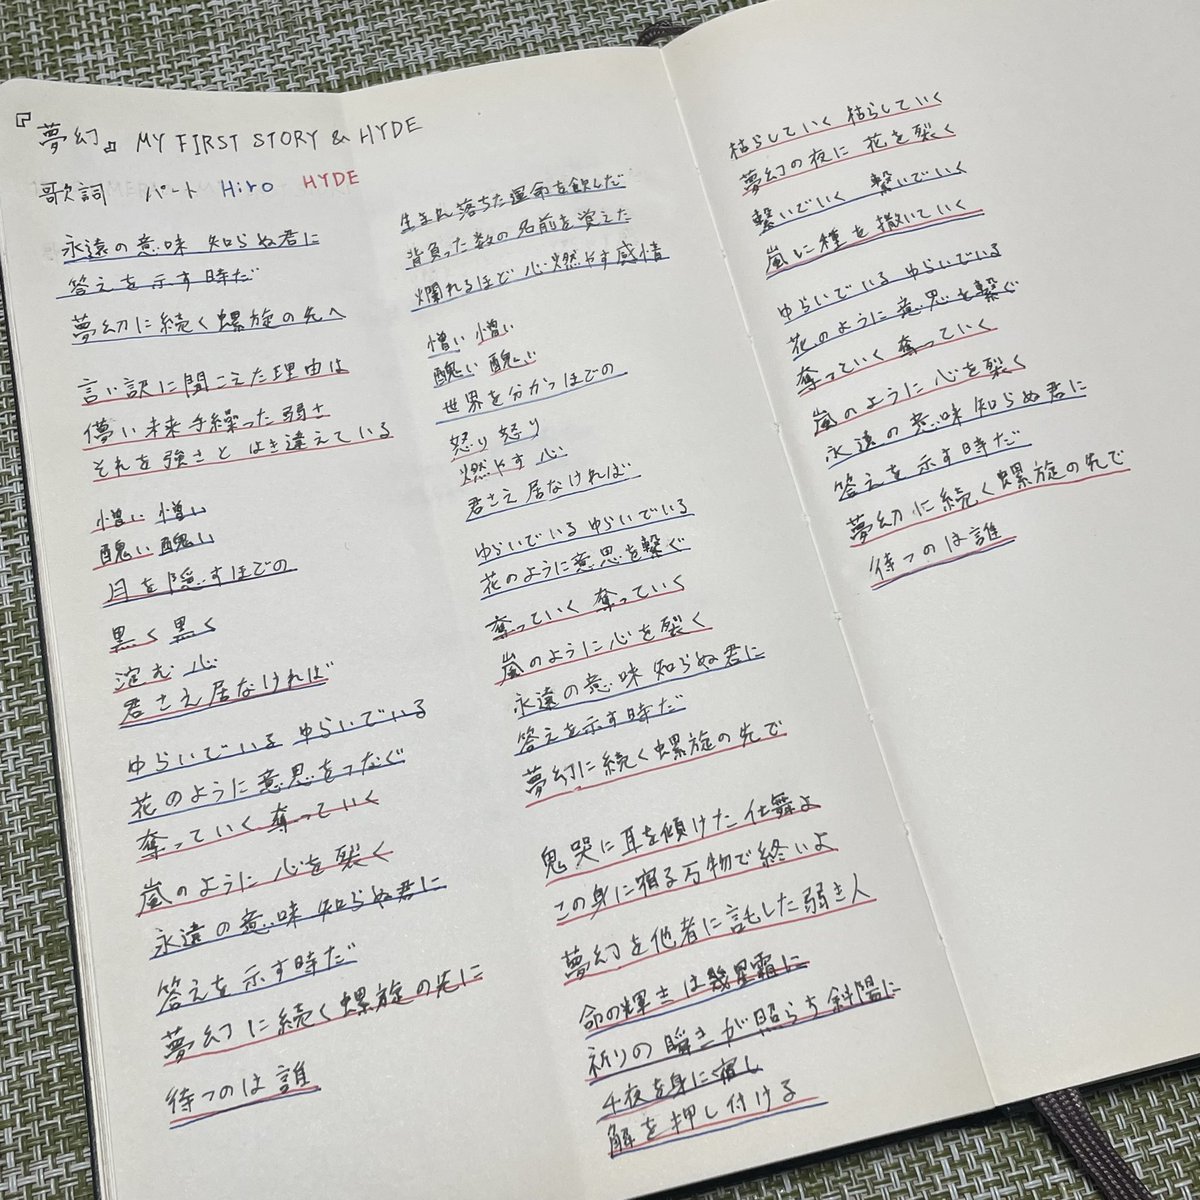 『夢幻』 MY FIRST STORY & HYDE
歌詞 パート Hiro HYDE
永遠の意味 知らぬ君に
答えを示す時だ
夢幻に続く螺旋の先へ
言い訳に聞こえた理由は
儚い未来 手繰った弱さ
それを強さと はき違えている
憎い 憎い
醜い 醜い
目を隠すほどの
黒く 黒く
淀む 心
君さえ居なければ
ゆらいでいる ゆらいでいる
花のように意思をつなぐ
奪っていく 奪っていく
嵐のように 心を裂く
永遠の意味 知らぬ君に
答えを示す時だ
夢幻に続く螺旋の先に
待つのは誰
生まれ落ちた運命を飲んだ
背負った数の名前を覚えた
爛れるほど 心燃やす感情
憎い 憎い
醜い 醜い
世界を分かつほどの
怒り 怒り
燃やす 心
君さえ居なければ
ゆらいでいる ゆらいでいる
花のように意思を繋ぐ
奪っていく 奪っていく
嵐のように心を裂く
永遠の意味 知らぬ君に
答えを示す時だ
夢幻に続く螺旋の先で
鬼哭に耳を傾けた仕舞よ
この身に宿る万物で終いよ
夢幻を他者に託した弱き人
命の輝きは幾星霜に
祈りの瞬きが照らす斜陽に
千夜を身に宿し
解を押し付ける
枯らしていく 枯らしていく
夢幻の夜に 花を裂く
繋いでいく 繋いでいく
嵐に種を撒いていく
ゆらいでいる ゆらいでいる
花のように意思を繋ぐ
奪っていく 奪っていく
嵐のように心を裂く
永遠の意味 知らぬ君に
答えを示す時だ
夢幻に続く螺旋の先で
待つのは誰